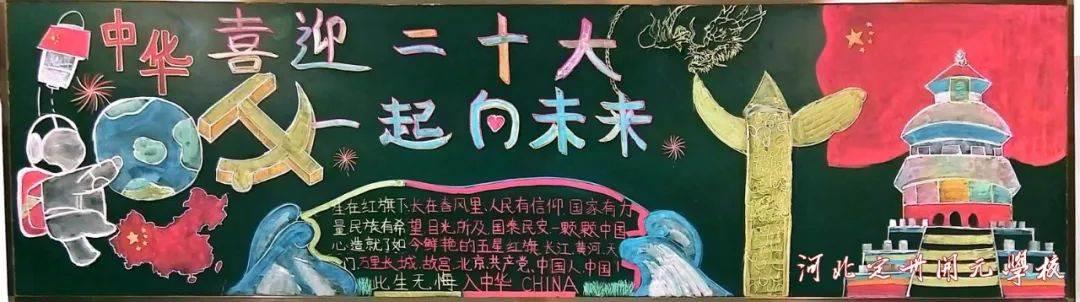 中华喜迎二十大
一起向未来
生在红旗下,长在春风里、人民有信仰 国家有力
量民族有希望 目光所及、国泰民安一颗颗中国
心造就了如今鲜艳的五星红旗、长江、黄河、天
门、万里长城、故宫、北京、共产党、中国人、中国!
此生无悔入中华 CHINA
河北定州開元學校